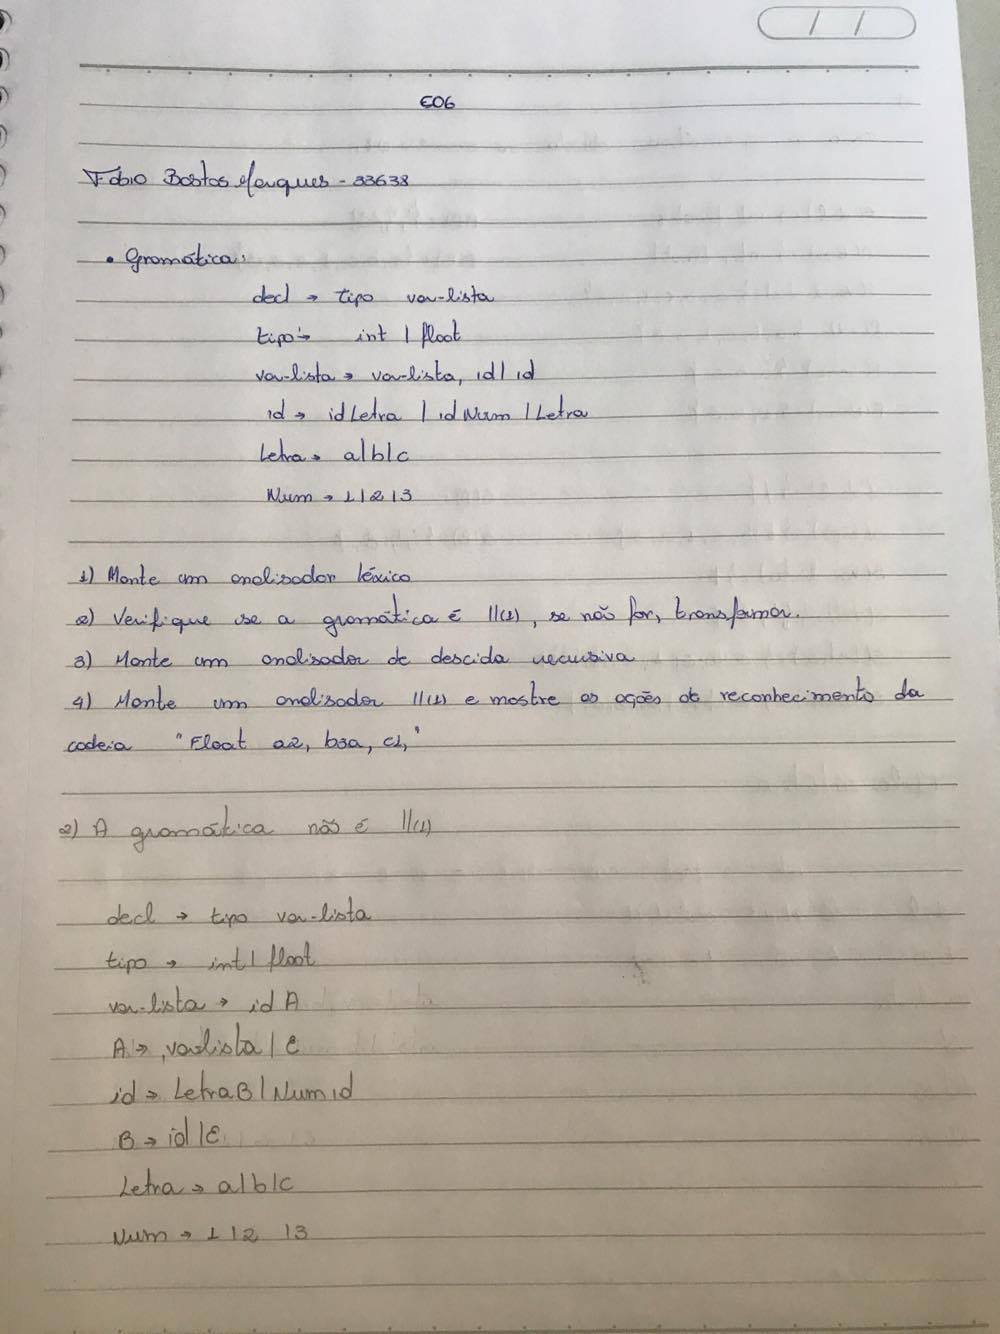 E06
Fábio Bastos Marques - 33638
• Gramática:
decl → tipo var-lista
tipo → int | float
var-lista → var-lista, id | id
id → idLetra | idNum | Letra
Letra → a|b|c
Num → 1|2|3
1) Monte um analisador léxico
2) Verifique se a gramática é ll(1), se não for, transformar.
3) Monte um analisador de descida recursiva
4) Monte um analisador ll(1) e mostre as ações de reconhecimento da
cadeia "Float a2, b3a, c1,"
2) A gramática não é ll(1)
decl → tipo var-lista
tipo → int | float
var-lista → id A
A → ,varlista | ε
id → LetraB | Num id
B → id | ε
Letra → a|b|c
Num → 1 | 2 | 3